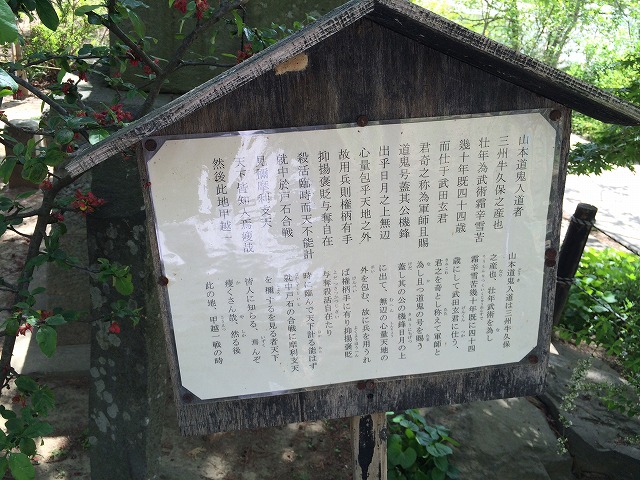 山本道鬼入道者
三州牛久保之産也
壮年為武術霜辛雪苦
幾十年既四十四歳
而仕于武田玄君
君奇之称為軍師且賜
道鬼号蓋其公機鋒
出乎日月上無辺
心量包乎天地之外
故用兵則権柄有手
抑揚褒貶与奪自在
殺活臨時而天不能計
就中於戸石合戦
見欄摩利支天
天下皆知人焉廋哉
然後此地甲越
山本道鬼入道は三州牛久保
之産也、壮年武術を為し
霜辛雪苦幾十年既に四十四
歳にして武田玄君に仕う、
君之を奇とし称えて軍師と
為し且つ道鬼の号を賜う
蓋し其の公の機鋒日月の上
に出て、無辺の心量天地の
外を包む、故に兵を用うれ
ば権柄手に有り抑揚褒貶
与奪自在たり
時に臨んで天下計る能はず
就中戸石の合戦に摩利支天
を欄するを見る者天下
皆人に知らる、焉んぞ
廋くさん哉、然る後
此の地、甲越一戦の時